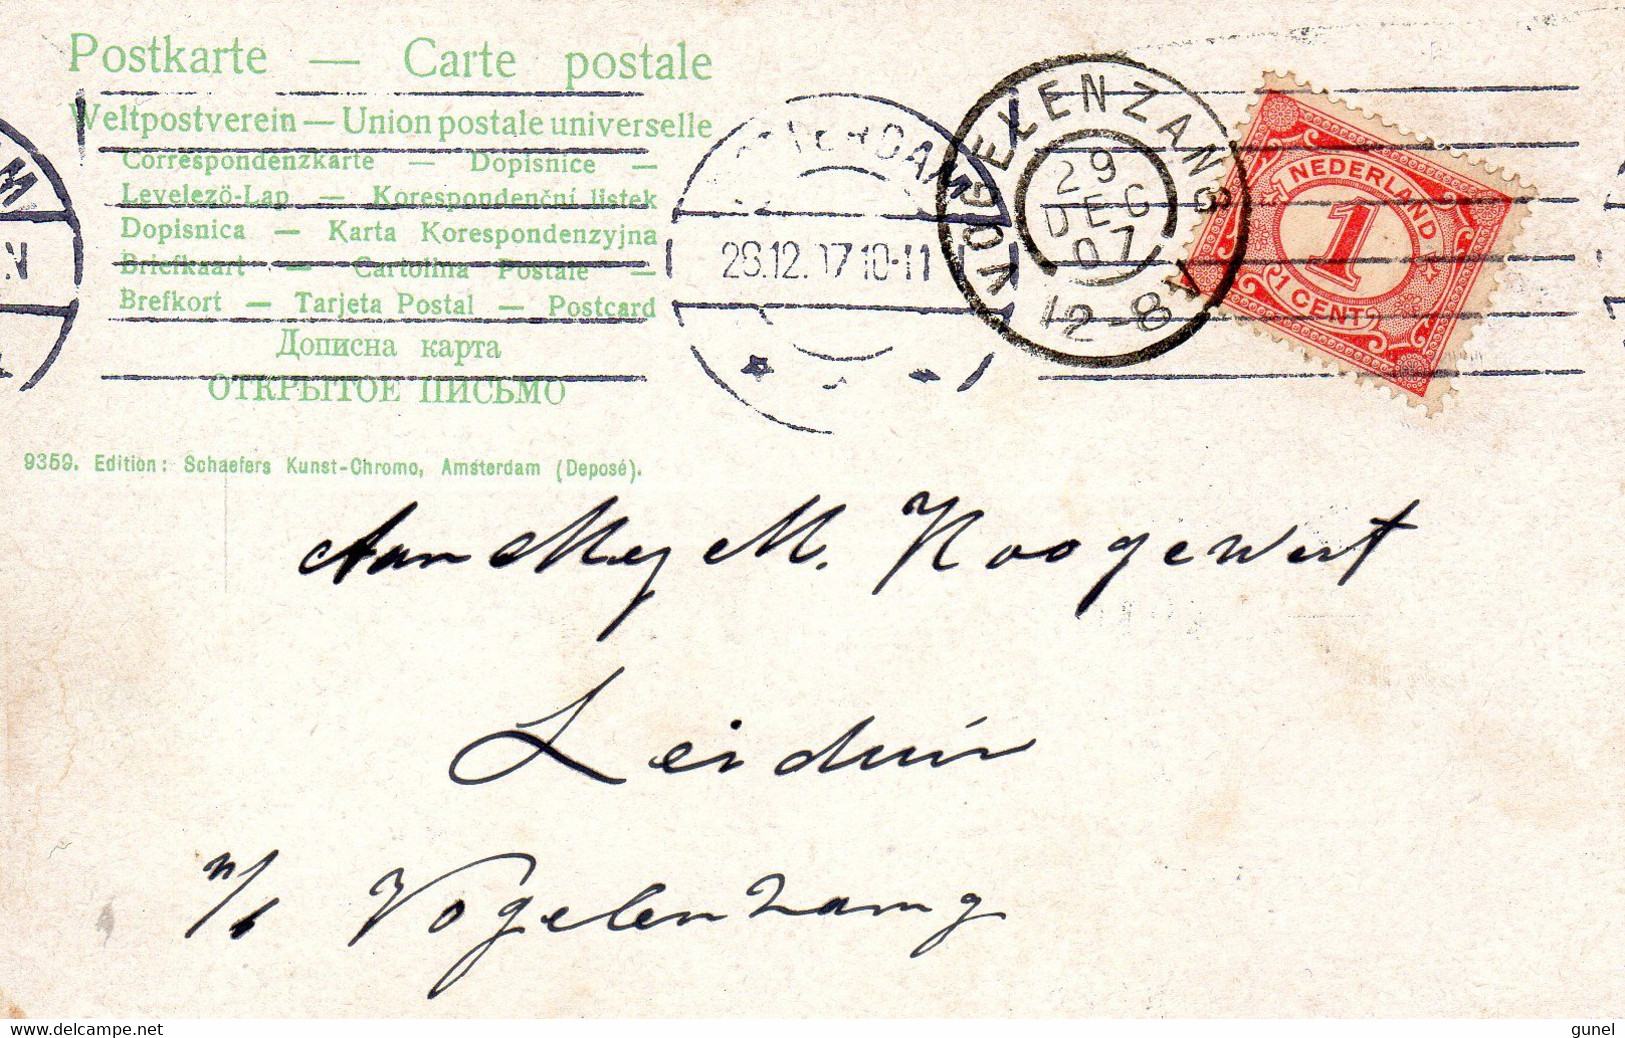 Postkarte — Carte postale
Weltpostverein — Union postale universelle
Correspondenzkarte — Dopisnice —
Levelező-Lap — Korespondenční listek
Dopisnica — Karta Korespondenzyjna
Briefkaart — Cartolina Postale —
Brefkort — Tarjeta Postal — Postcard
Дописна карта
ОТКРЫТОЕ ПИСЬМО
9359. Edition: Schaefers Kunst-Chromo, Amsterdam (Deposé).
28.12.07 10-11
VOGELENZANG
29
DEC
07
12-8V
NEDERLAND
1
1 CENT
Aan Mej M. Hoogewerf
Leiduin
n/b Vogelenzang
delcampe.net
gunel